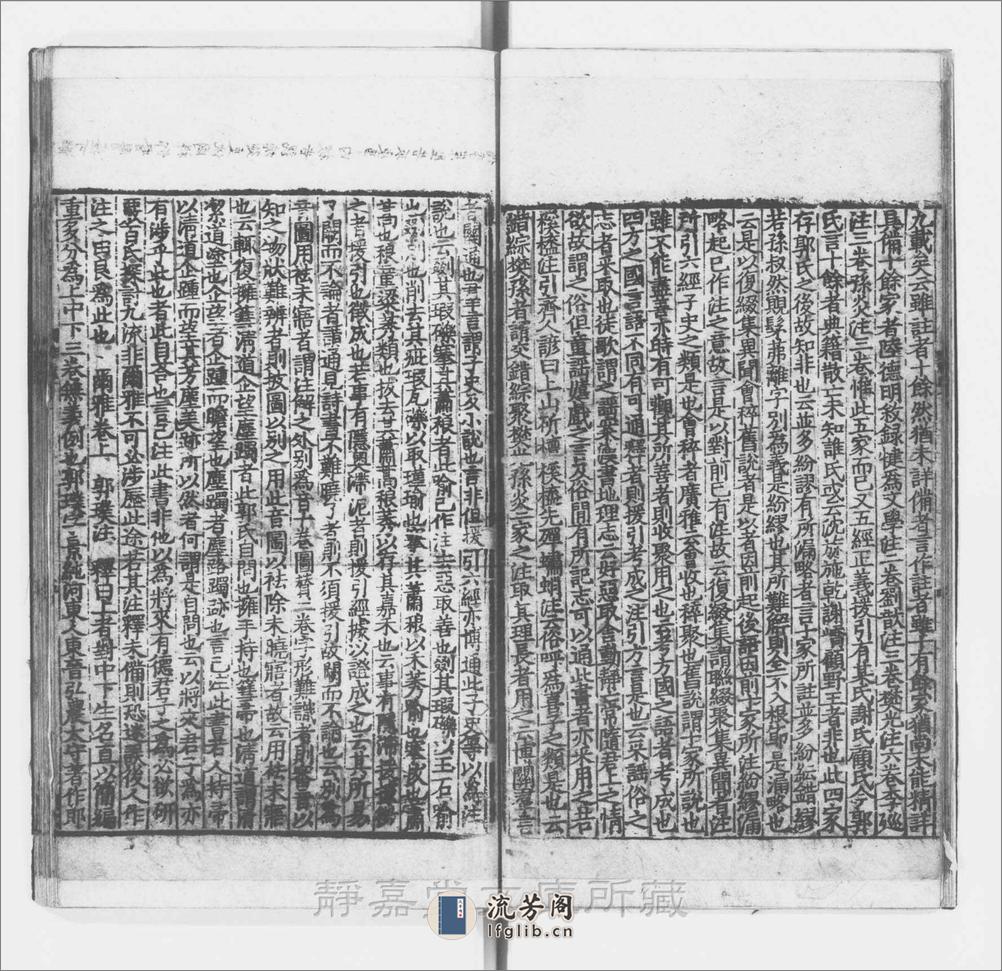 九載矣云雖註者十餘然猶未詳備者言作註者雖十有餘家猶尚未能精詳
具備十餘家者陸德明敘錄犍為文學注二卷劉歆注三卷樊光注六卷李巡
注三卷孫炎注三卷惟此五家而已又五經正義援引有某氏謝氏顧氏今郭
氏言十餘者典籍散亡未知誰氏或云沈旋施乾謝嶠顧野王者非也此四家
存郭氏之後故知非也云並多紛謬有所漏略者言十家所註並多紛紜錯繆
若孫叔然觀髳茀離字別為義是紛繆也其所難解則全不入根節是漏略也
云是以復綴集異聞會稡舊說者是以者因前起後語因前十家所注紛繆漏
略起已作注之意故言是以對前已有注故云復綴集謂聯綴聚集異聞者注
所引六經子史之類是也會稡者廣雅云會收也稡聚也舊說謂十家所說也
雖不能盡善亦時有可觀其所善者則收聚用之也云考方國之語者考成也
四方之國言語不同有可通釋者則援引考成之注引方言是也云采謠俗之
志者采取也徒歌謂之謠案漢書地理志云好惡取舍動靜亡常隨君上之情
欲故謂之俗但童謠嬉戲之言及俗間有所記志可以通此書者亦采用之若
楔橋注引齊人諺曰上山斫檀楔橋先殫蠨蛸注云俗呼為喜子之類是也云
錯綜樊孫者謂交錯綜聚樊光孫炎二家之注取其理長者用之云博關羣言
者關通也羣言謂子史及小說也言非但援引六經亦博通此子史等以為注
說也云剟其瑕礫搴其蕭稂者此喻己作注去惡取善也剟其瑕礫以玉石喻
也剟削也削去其玼瑕瓦礫以取瑾瑜也搴其蕭稂以禾莠喻也搴拔也蕭
蒿也稂童粱莠類也拔去其蕭蒿稂莠以存其嘉禾也云事有隱滯援據徵
之者援引也徵成也若事有隱奧滯泥者則援引經據以證成之也云其所易
了闕而不論者謂通見詩書不難曉了者則不須援引故闕而不論也云別為
音圖用袪未寤者謂注解之外別為音一卷圖贊二卷字形難識者則審音以
知之物狀難辨者則披圖以別之用此音圖以袪除未曉寤者故云用袪未寤
也云輒復擁篲清道企望塵躅者此郭氏自問也擁手持也篲帚也清道謂清
絜道塗也企望者企踵而瞻望也塵躅者塵路躅跡也言己注此書若人持帚
以清道企踵而望其芳塵美跡所以然者何謂是自問也云以將來君子為亦
有涉乎此也者此自答也言己注此書非他以為將來有德君子之為必欲研
覈百氏探討九流非爾雅不可必涉歷此途若其注釋未備則恐迷誤後人作
注之由良為此也 爾雅卷上 郭璞注 釋曰上者對中下生名直以簡編
重多分為上中下三卷無義例也郭璞字景純河東人東晉弘農太守著作郎
靜嘉堂文庫所藏
流芳阁
lfglib.cn